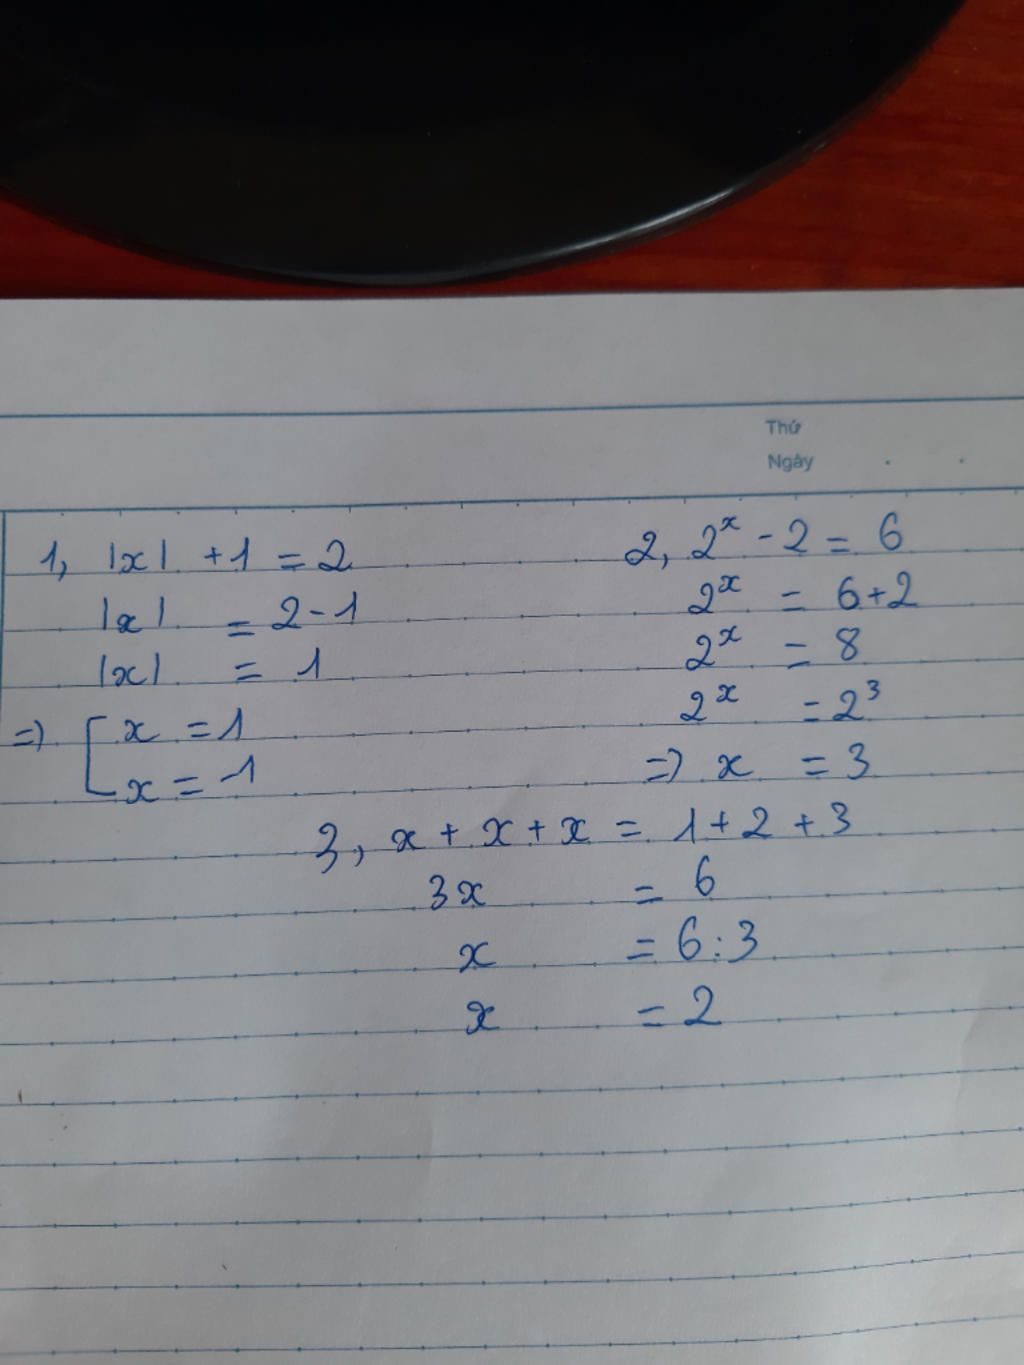 Thứ
Ngày
1, |x| + 1 = 2
|x| = 2 - 1
|x| = 1
=> [ x = 1
x = -1
2, 2ˣ - 2 = 6
2ˣ = 6 + 2
2ˣ = 8
2ˣ = 2³
=> x = 3
3, x + x + x = 1 + 2 + 3
3x = 6
x = 6 : 3
x = 2